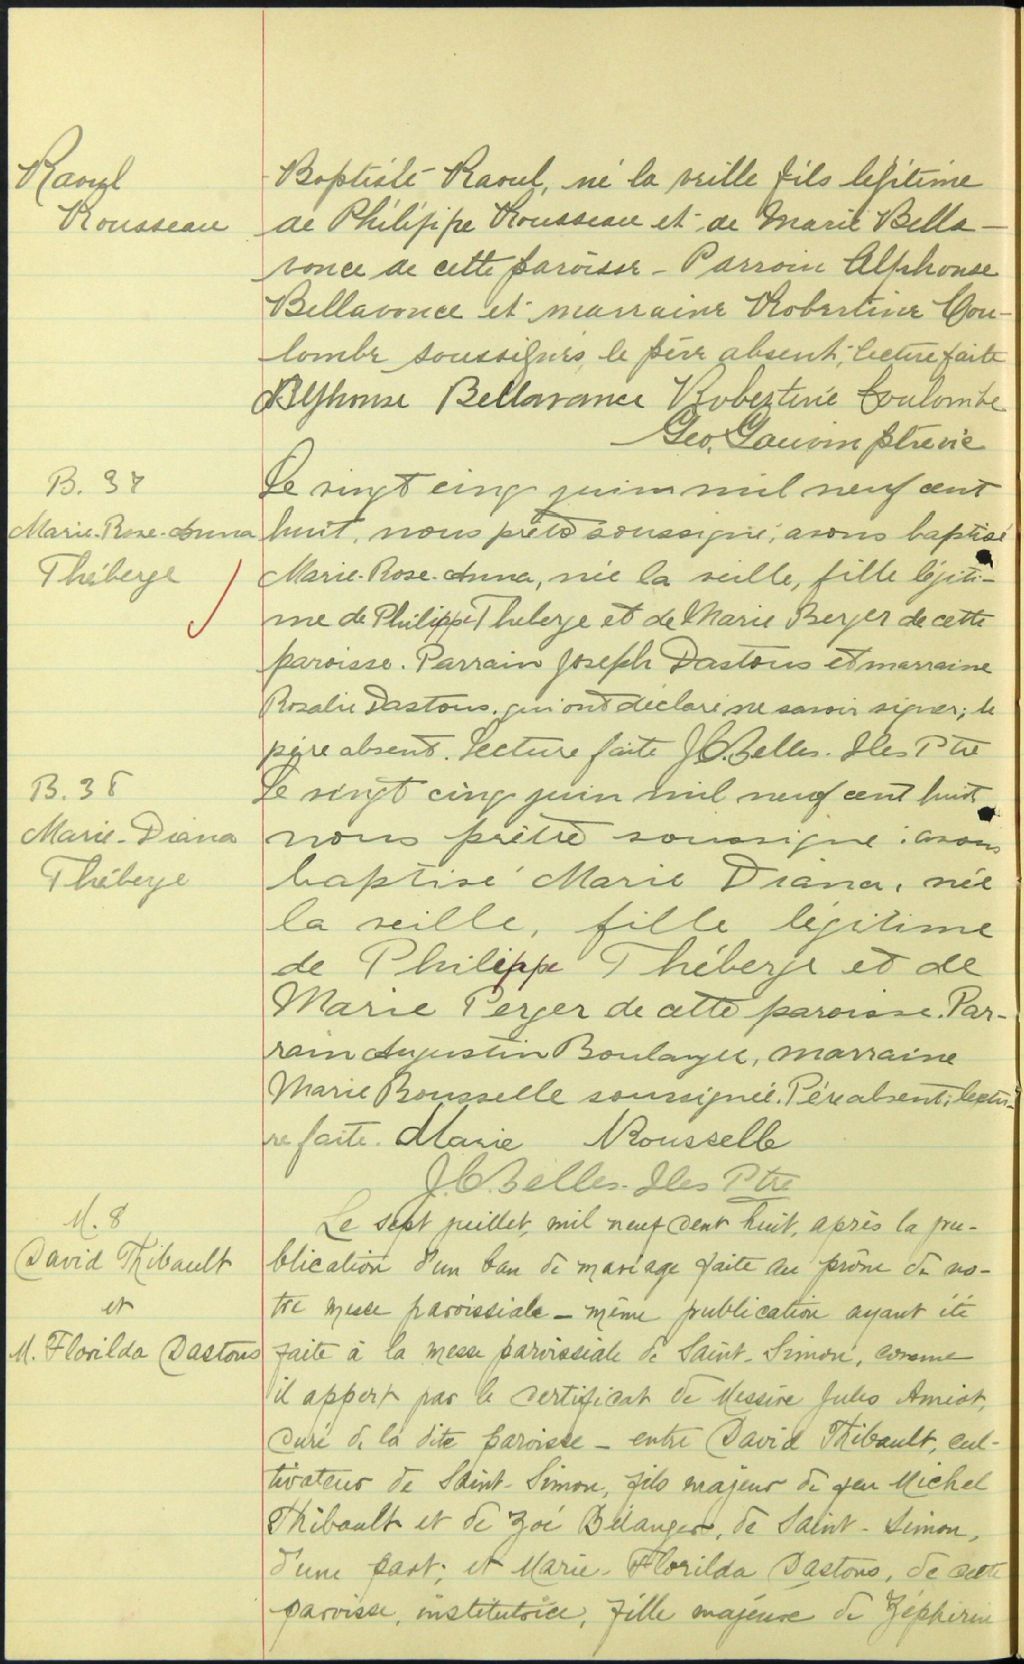 Raoul
Rousseau
Baptiste Raoul, né la veille fils légitime
de Philippe Rousseau et de Marie Bella-
vance de cette paroisse - Parrain Alphonse
Bellavance et marraine Robertine Cou-
lombe soussignés, le père absent, lecture faite
Alphonse Bellavance Robertine Coulombe
Geo. Gauvin ptre vic
B. 37
Marie-Rose-Anna
Théberge
Le vingt cinq juin mil neuf cent
huit, nous prêtre soussigné, avons baptisé
Marie-Rose-Anna, née la veille, fille légiti-
me de Philippe Theberge et de Marie Berger de cette
paroisse. Parrain Joseph Dastous et marraine
Rosalie Dastous, qui ont déclaré ne savoir signer; le
père absent. Lecture faite J.C. Belles-Iles Ptre
B. 38
Marie-Diana
Théberge
Le vingt cinq juin mil neuf cent huit
nous prêtre soussigné avons
baptisé Marie Diana, née
la veille, fille légitime
de Philippe Théberge et de
Marie Perger de cette paroisse. Par-
rain Augustin Boulanger, marraine
Marie Rousselle soussignée. Père absent; lectu-
re faite. Marie Rousselle
J.C. Belles-Iles Ptre
M. 8
David Thibault
et
M. Florilda Dastous
Le sept juillet, mil neuf cent huit, après la pu-
blication d'un ban de mariage faite au prône de no-
tre messe paroissiale - même publication ayant été
faite à la messe paroissiale de Saint-Simon, comme
il appert par le certificat de Messire Jules Amiot,
curé de la dite paroisse - entre David Thibault, cul-
tivateur de Saint-Simon, fils majeur de feu Michel
Thibault et de Zoé Bélanger, de Saint-Simon,
d'une part; et Marie-Florilda Dastous, de cette
paroisse, institutrice, fille majeure de Zéphirin